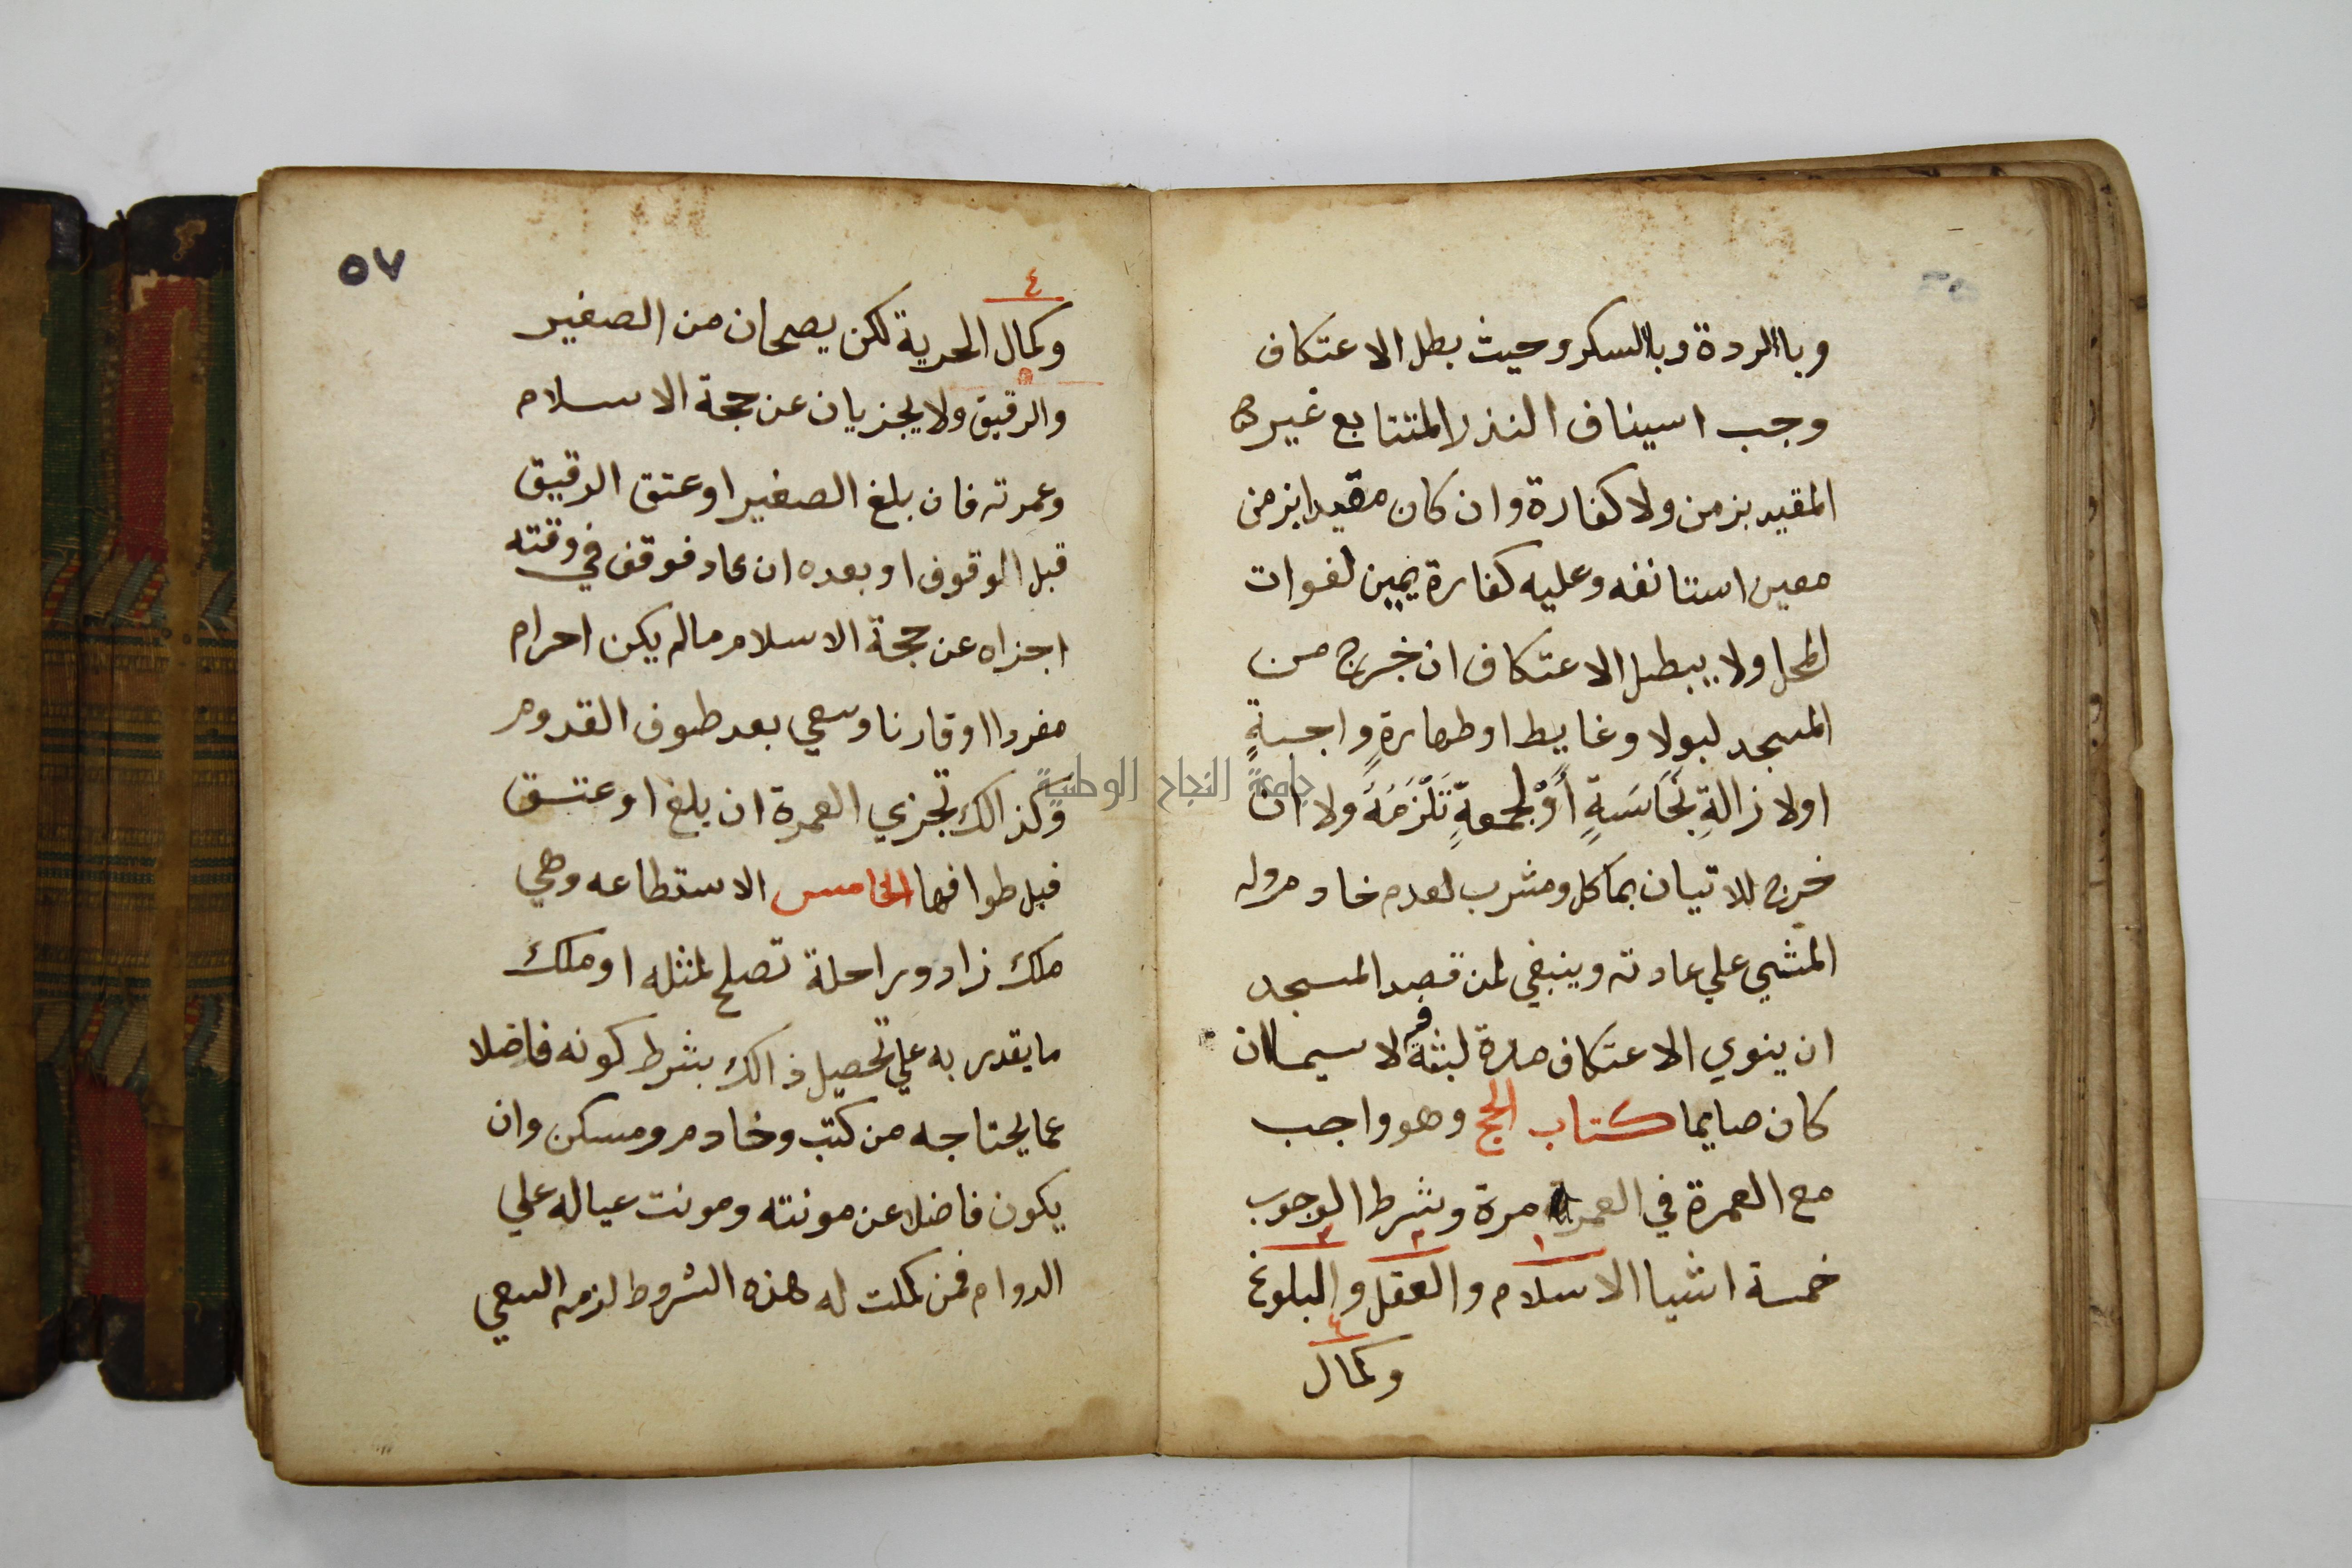 وباالردة وباالسكر وحيث بطل الاعتكاف
وجب اسيناف النذر المتتابع غير
المقيد بزمن ولا كفارة وان كان مقيدا بزمن
معين استانفه وعليه كفارة يمين لفوات
المحل ولا يبطل الاعتكاف ان خرج من
المسجد لبول او غايط او طهارةٍ واجبةٍ
اولا زالةِ نَجَاسَةٍ أَوْ لجمعةٍ تَلْزَمَهُ ولا ان
خرج للاتيان بماكل ومشرب لعدم خادم وله
المشي علي عادته وينبغي لمن قصد المسجد
ان ينوي الاعتكاف مدة لبثه فيه لا سيما ان
كان صايما كتاب الحج وهو واجب
مع العمرة في العمر مرة وشرط الوجوب
١ ٢ ٣
خمسة اشيا الاسلام والعقل والبلوغ
٤
وكمال
٥٧
٤
وكمال الحرية لكن يصحان من الصغير
والرقيق ولا يجزيان عن حجة الاسلام
وعمرته فان بلغ الصغير او عتق الرقيق
قبل الوقوف او بعده ان عاد فوقف في وقته
اجزاه عن حجة الاسلام مالم يكن احرام
مفردا او قارنا وسعي بعد طوف القدوم
وكذالك تجزي العمرة ان بلغ او عتق
قبل طوافها الخامس الاستطاعه وهي
ملك زاد وراحلة تصلح لمثله او ملك
ما يقدر به علي تحصيل ذالك بشرط كونه فاضلا
عما يحتاجه من كتب وخادم ومسكن وان
يكون فاضلا عن مونته ومونت عياله علي
الدوام فمن كملت له هذه الشروط لزمه السعي
جامعة النجاح الوطنية